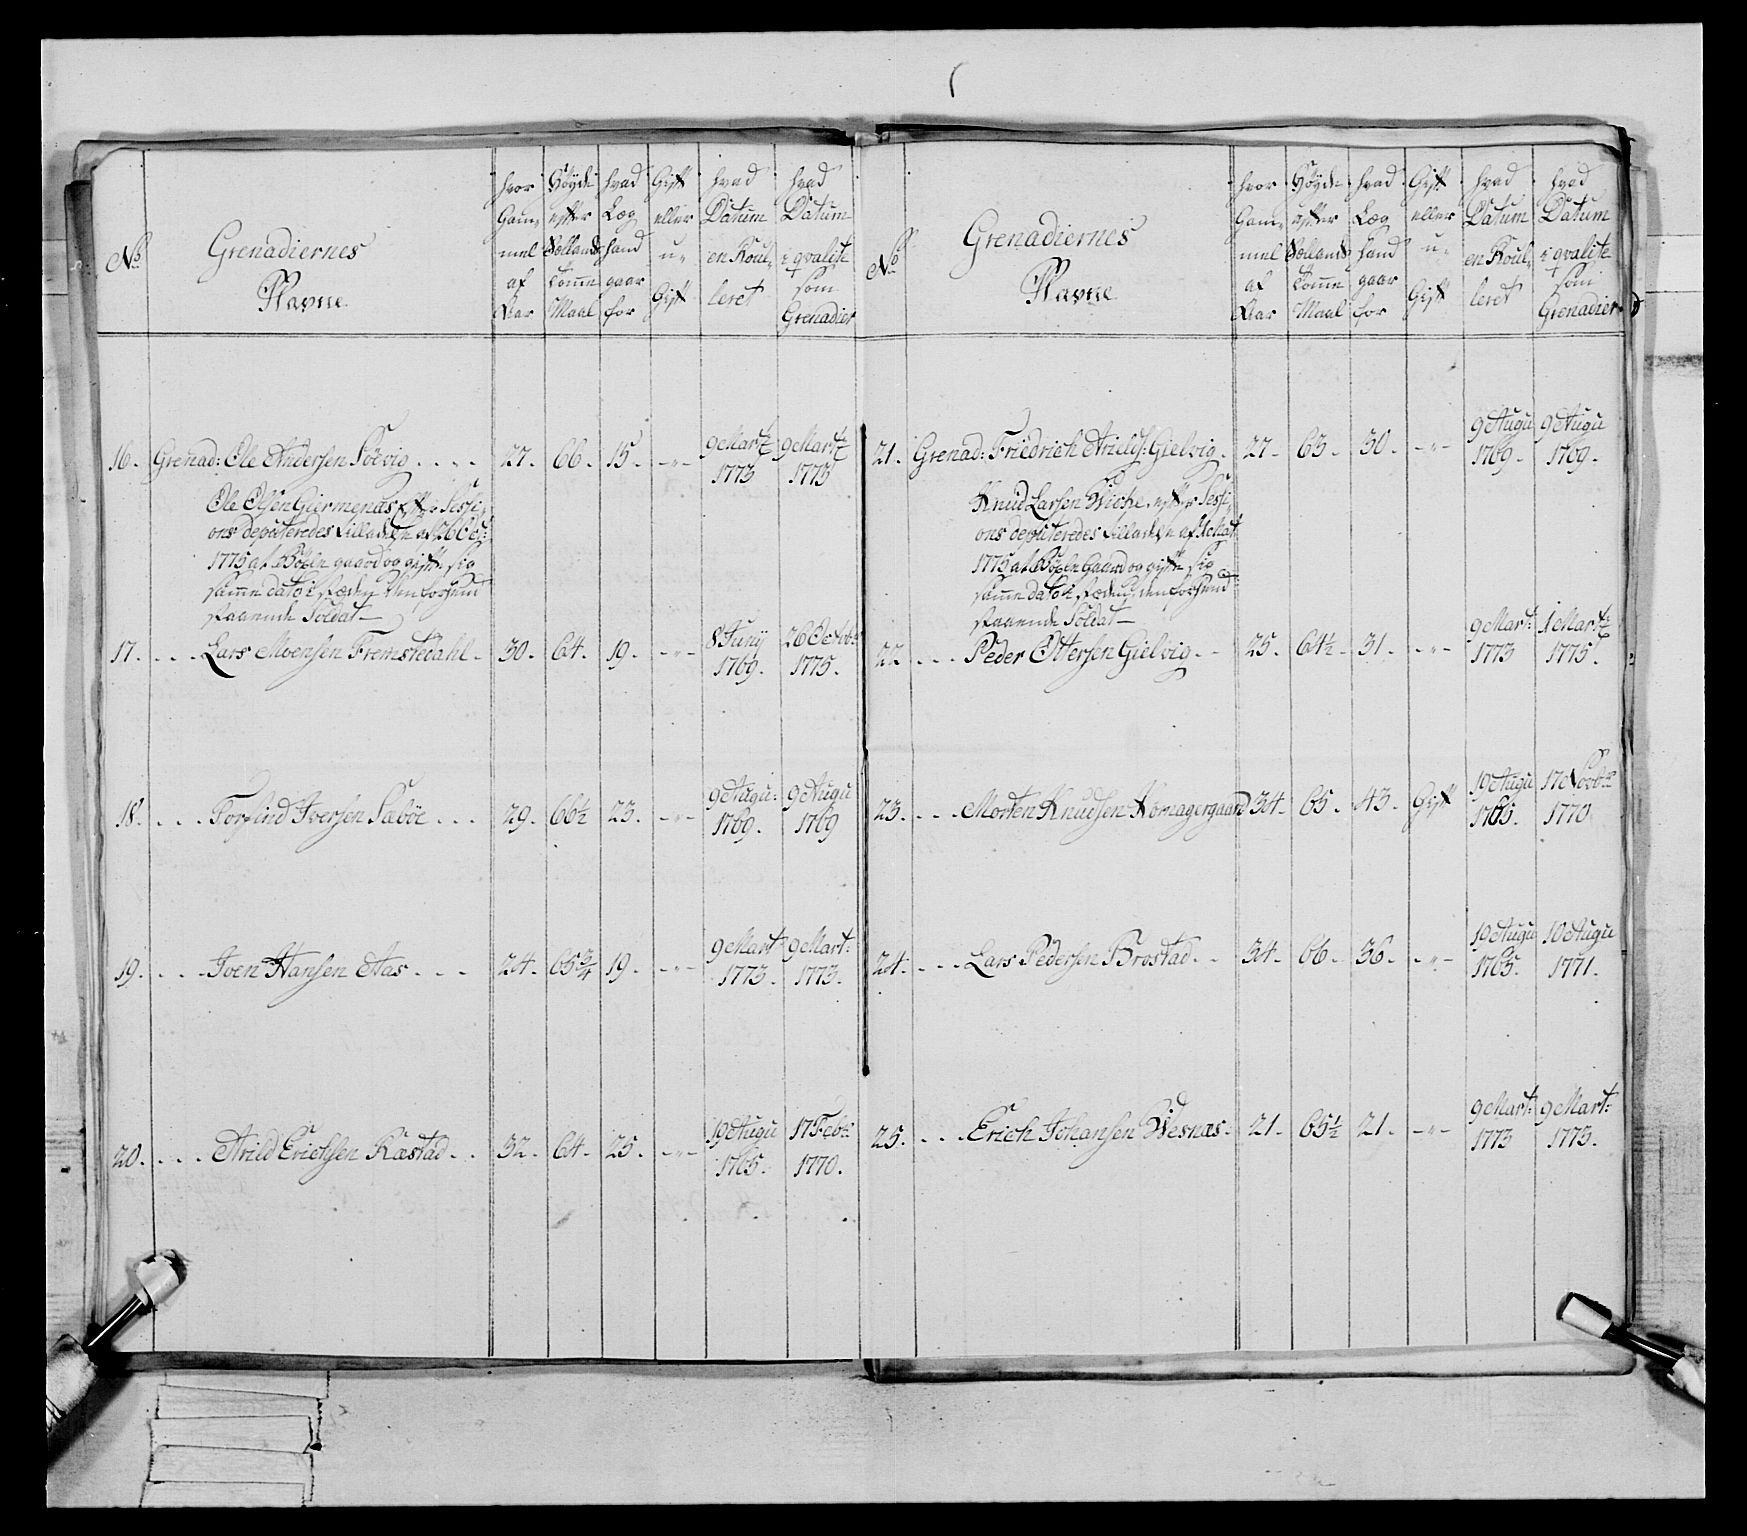 No
Grenadiernes
Navne
hvor Gam- mel af Aar
Höyde efter Sællands Tomme Maal
hvad Læg hand gaar for
Gift eller u- Gift
hvad Datum en Roul- leret
hvad Datum i qvalite som Grenadier
16. Grenad: Ole Andersen Söevig . . . . 27. 66. 15. -"- 9 Marty 1773 9 Marty 1773
Ole Olsen Giermenæs efter Sessi-
ons deputeredes Tilladelse af 26 Oct:
1775 at Böxle gaard og gifte sig
samme dato i stæden den forhend
staaende Soldat —
17. . . . Lars Moensen Fremstedahl . 30. 64. 19. -"- 8 Juny 1769. 26 Octobr 1775.
18. . . . Torfind Iversen Sæböe . . . 29. 66½ 23. -"- 9 Augu: 1769. 9 Augu 1769
19. . . . Joen Hansen Aas . . . 24. 65¾ 19. -"- 9 Mart 1773. 9 Mart: 1773.
20. . . . Arild Erichsen Ræstad . . 32. 64. 25. -"- 19 Augu 1765. 17 Febr: 1770.
No
Grenadiernes
Navne
hvor Gam- mel af Aar
Höyde efter Sællands Tomme Maal
hvad Læg hand gaar for
Gift eller u- Gift
hvad Datum en Roul- leret
hvad Datum i qvalite som Grenadier
21. Grenad: Friedrich Arilds: Gielvig . 27. 63. 30. -"- 9 Augu 1769. 9 Augu 1769.
Knud Larsen Wiche, efter Sessi-
ons deputeredes Tilladelse af
1775 at Böxle Gaard og gifte sig
samme dato i stæden den forhend
staaende Soldat —
22 . . . Peder Ottersen Gielvig . . 25. 64½. 31. -"- 9 Mart: 1773 1 Marty 1775.
23. . . . Morten Knudsen Homagergaard 34. 65. 43. Gift 19 Augu 1765. 17 Novbr 1770
24. . . . Lars Pedersen Brostad . . 34. 66. 36. -"- 19 Augu 1765. 10 Augu 1771.
25. . . . Erich Johansen Wesnæs. 21. 65½ 21. -"- 9 Mart: 1773 9 Mart: 1773.